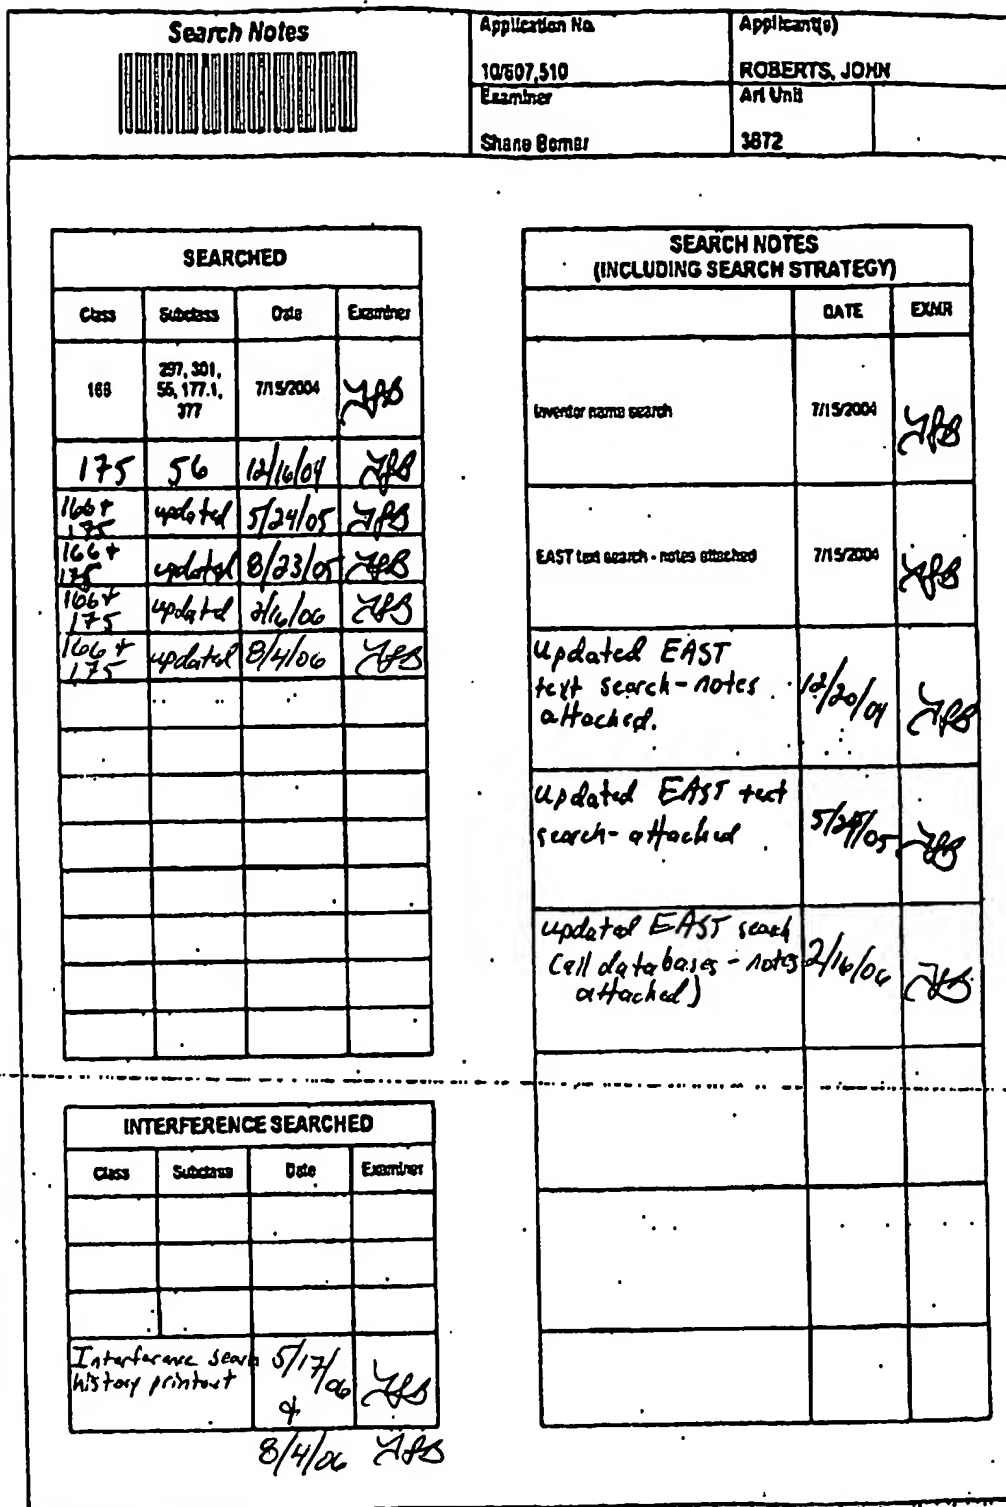 Search Notes
Application No.
10/607,510
Applicant(s)
ROBERTS, JOHN
Examiner
Shane Bomar
Art Unit
3672
SEARCHED
Class Subclass Date Examiner
166 297, 301, 55, 177.1, 377 7/15/2004
175 56 12/16/04
166 + 175 updated 5/24/05
166 + 175 updated 8/23/05
166 + 175 updated 2/16/06
166 + 175 updated 8/4/06
INTERFERENCE SEARCHED
Class Subclass Date Examiner
Interference search
history printout
5/17/06
&
8/4/06
SEARCH NOTES
(INCLUDING SEARCH STRATEGY)
DATE EXMR
Inventor name search 7/15/2004
EAST text search - notes attached 7/15/2004
updated EAST
text search - notes 12/20/04
attached.
updated EAST text
search - attached 5/24/05
updated EAST search
(all databases - notes 2/16/06
attached)